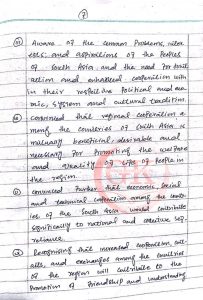 7
Aware of the common Problems, inter
ests, and aspirations of the Peoples
of South Asia and the need for Joint
action and enhanced cooperation with
in their respective Political and eco
mic, System and cultural tradition.
Convinced that regional cooperation a
mong the countries of South Asia is
mutually beneficial, desirable and
necessary for Promoting the welfare
and quality of life of People in
the region.
Convinced Further that economic, social
and technical cooperation among the countri
es of the South Asia would contribute
significantly to national and collective self
reliance.
Recognising that increased cooperation, cont
acts, and exchanges among the countries
of the region will contribute to the
Promotion of Friendship and understanding